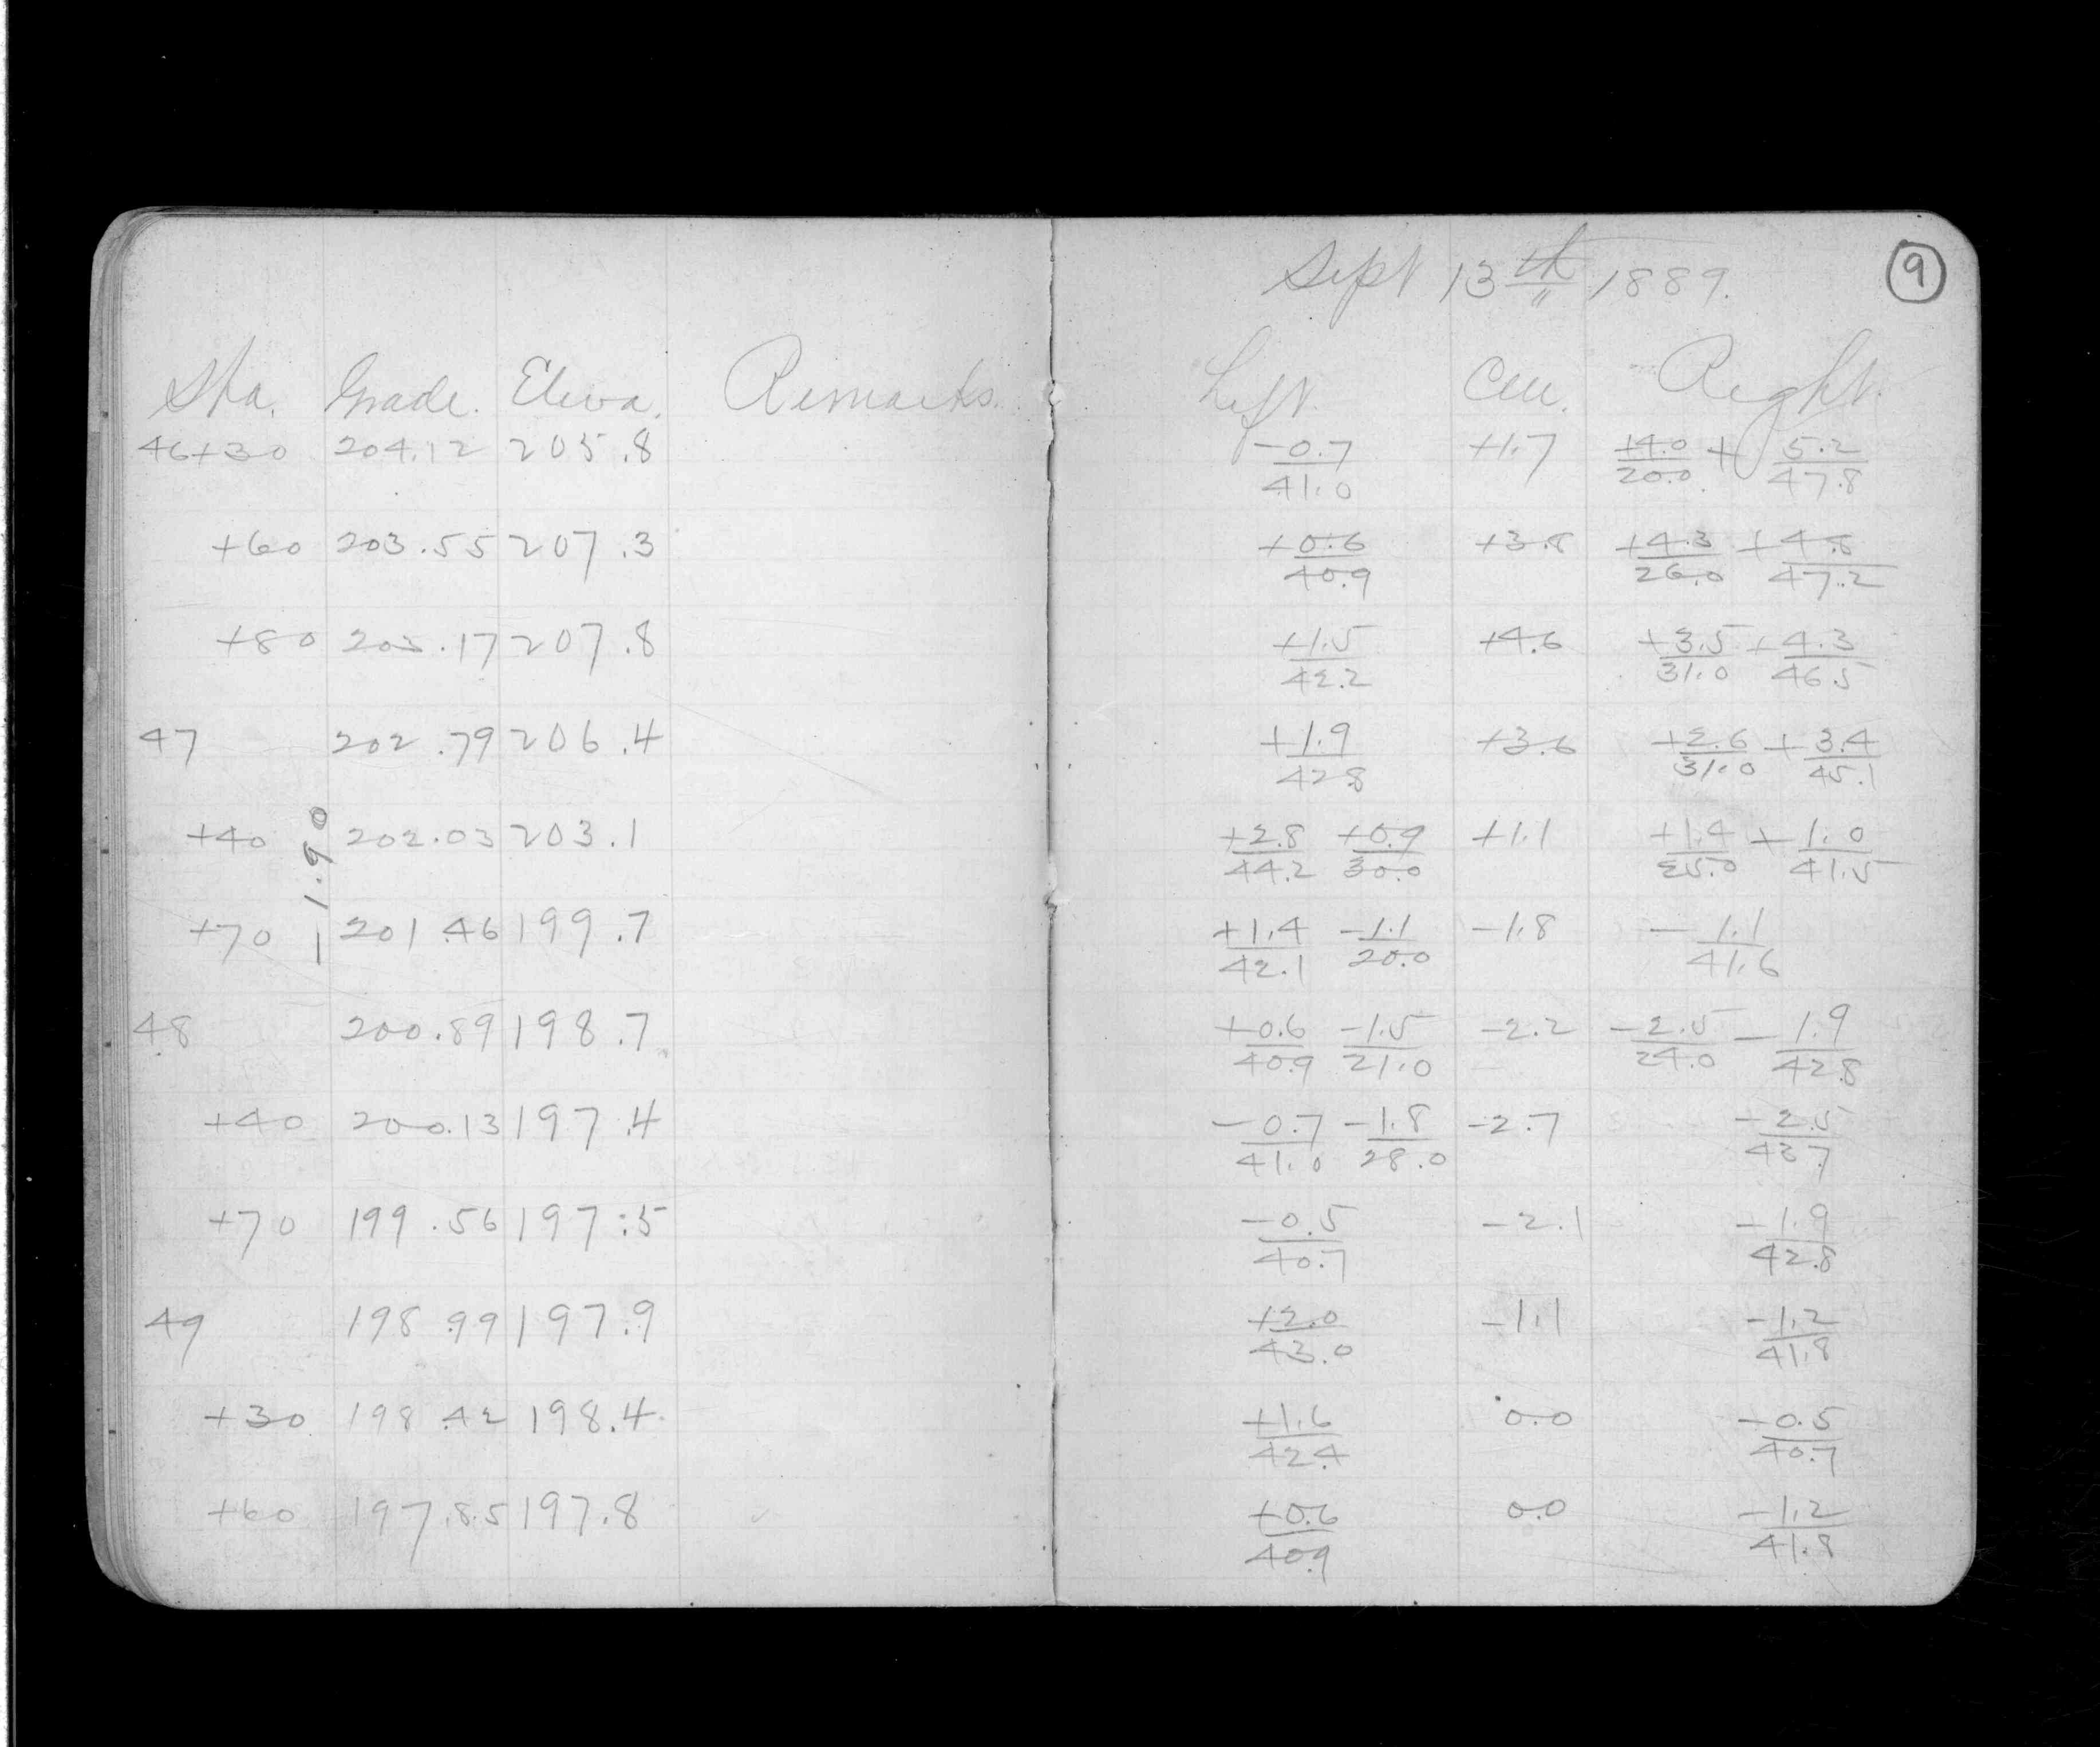 Sept 13th 1889. 9
Sta. Grade. Eleva. Remarks. Left. Cen. Right.
46+30 204.12 205.8 -0.7/41.0 +1.7 +4.0/20.0 +5.2/47.8
+60 203.55 207.3 +0.6/40.9 +3.8 +4.3/26.0 +4.8/47.2
+80 203.17 207.8 +1.5/42.2 +4.6 +3.5/31.0 +4.3/46.5
47 202.79 206.4 +1.9/42.8 +3.6 +2.6/31.0 +3.4/45.1
+40 202.03 203.1 +2.8/44.2 +0.9/30.0 +1.1 +1.4/25.0 +1.0/41.5
-1.90
+70 201.46 199.7 +1.4/42.1 -1.1/20.0 -1.8 -1.1/41.6
48 200.89 198.7 +0.6/40.9 -1.5/21.0 -2.2 -2.5/24.0 -1.9/42.8
+40 200.13 197.4 -0.7/41.0 -1.8/28.0 -2.7 -2.5/43.7
+70 199.56 197.5 -0.5/40.7 -2.1 -1.9/42.8
49 198.99 197.9 +2.0/43.0 -1.1 -1.2/41.8
+30 198.42 198.4 +1.6/42.4 0.0 -0.5/40.7
+60 197.85 197.8 +0.6/40.9 0.0 -1.2/41.8